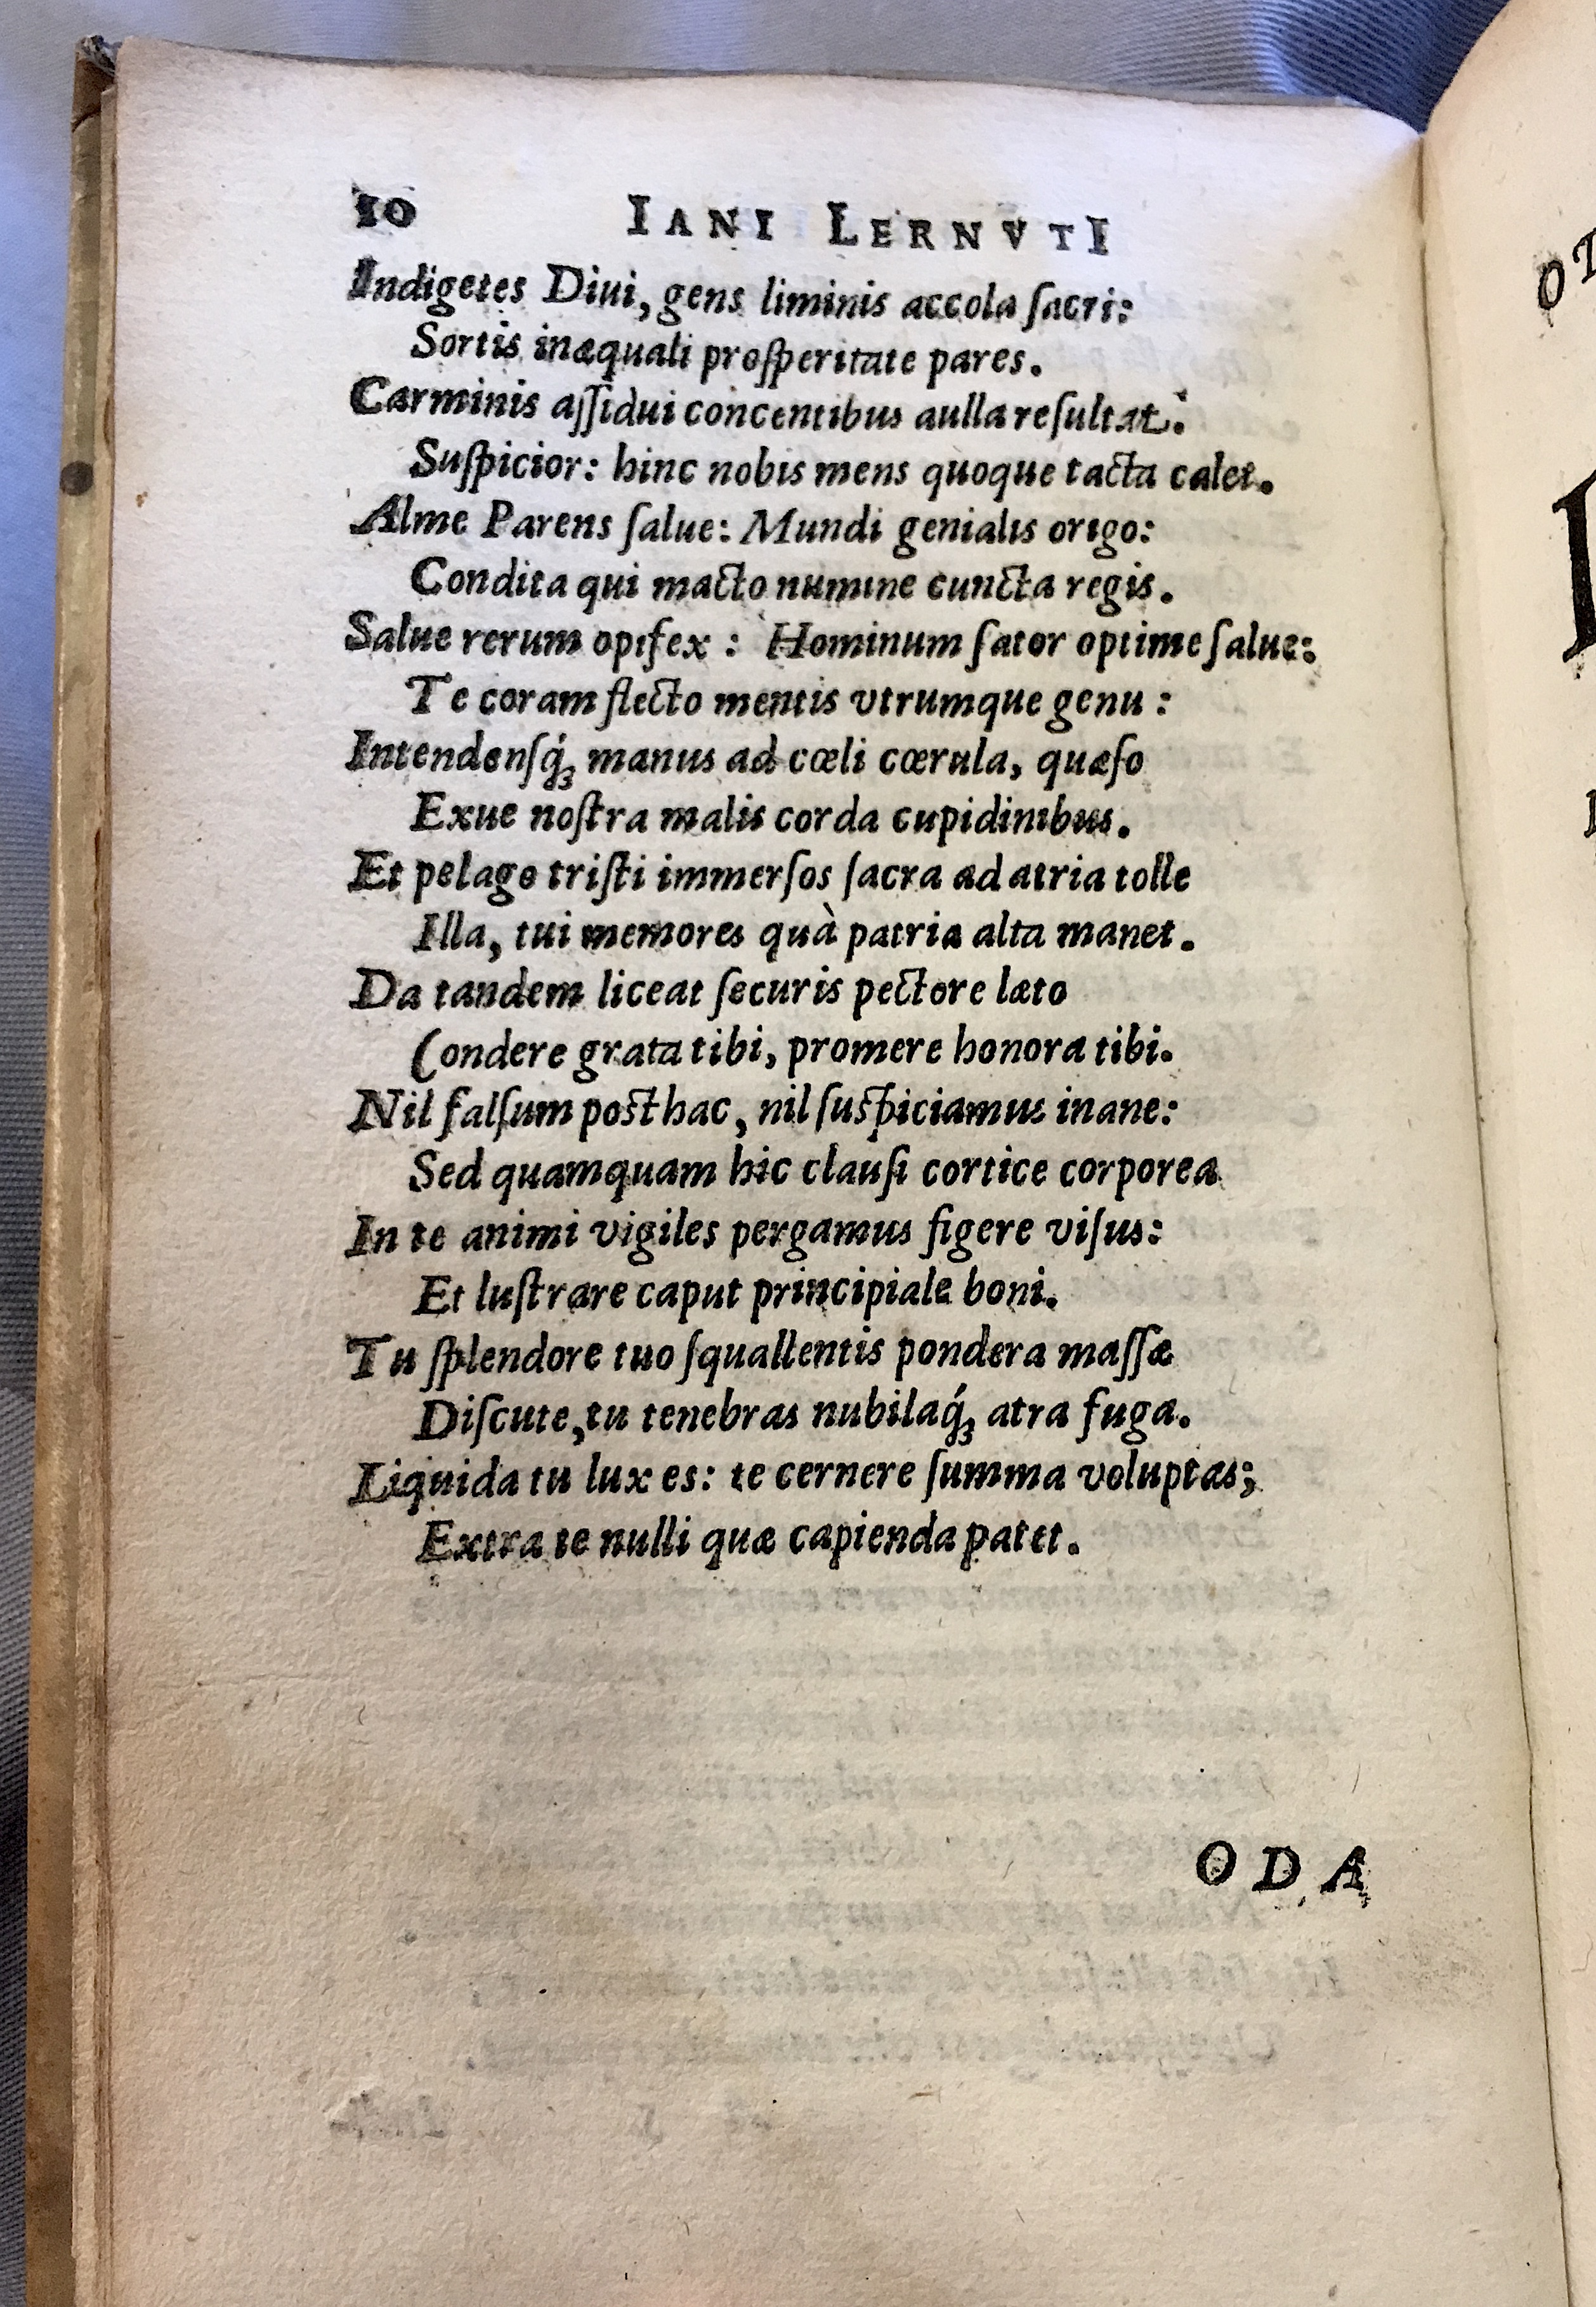 10 IANI LERNVTI
Indigetes Diui, gens liminis accola ſacri:
Sortis inæquali proſperitate pares.
Carminis aſſidui concentibus aulla reſultat:
Suſpicior: hinc nobis mens quoque tacta calet.
Alme Parens ſalue: Mundi genialis origo:
Condita qui macto numine cuncta regis.
Salue rerum opifex : Hominum ſator optime ſalue:
Te coram flecto mentis vtrumque genu :
Intendenſq́ꝫ manus ad cœli cœrula, quæſo
Exue noſtra malis corda cupidinibus.
Et pelago triſti immerſos ſacra ad atria tolle
Illa, tui memores quà patria alta manet.
Da tandem liceat ſecuris pectore læto
Condere grata tibi, promere honora tibi.
Nil falſum posthac, nil ſuspiciamus inane:
Sed quamquam hic clauſi cortice corporea
In te animi vigiles pergamus figere viſus:
Et luſtrare caput principiale boni.
Tu ſplendore tuo ſquallentis pondera maſſæ
Diſcute, tu tenebras nubilaq́ꝫ atra fuga.
Liquida tu lux es: te cernere ſumma voluptas;
Extra te nulli quæ capienda patet.
ODA